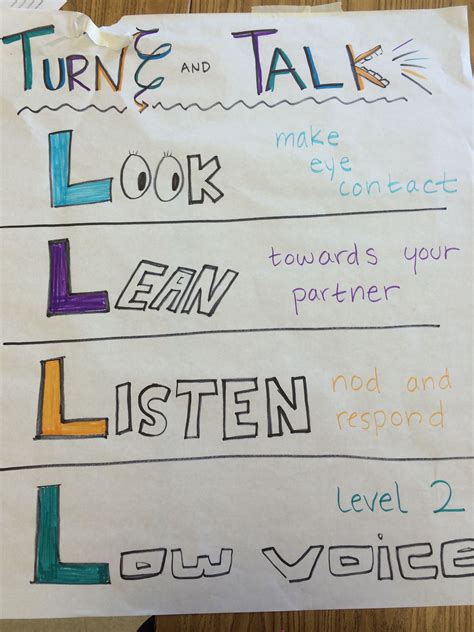 TURN AND TALK
LOOK
make
eye
contact
LEAN
towards your
partner
LISTEN
nod and
respond
Level 2
LOW VOICE